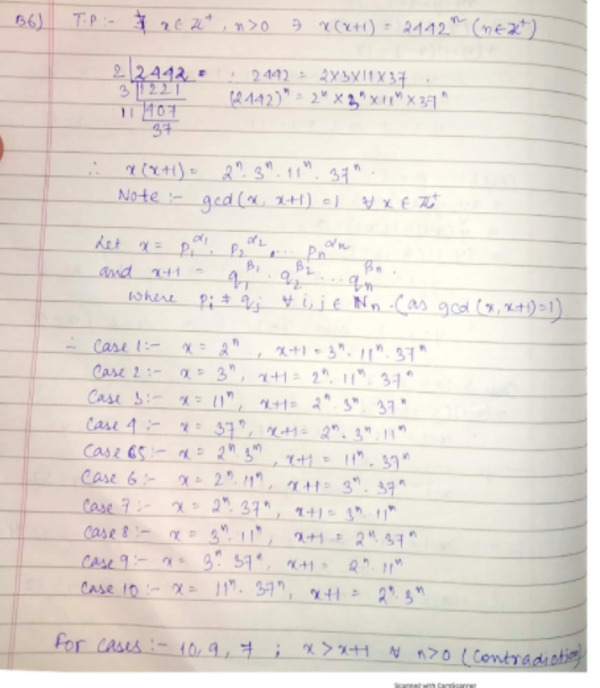 B6) T.P :- ∄ x ∈ Z⁺, n>0 ∋ x(x+1) = 2442ⁿ (n∈Z⁺)
2 | 2442 = . 2442 = 2×3×11×37 .
3 | 1221 (2442)ⁿ = 2ⁿ × 3ⁿ × 11ⁿ × 37ⁿ
11 | 407
37
∴ x(x+1) = 2ⁿ. 3ⁿ. 11ⁿ. 37ⁿ.
Note :- gcd(x, x+1) = 1 ∀ x ∈ Z⁺
Let x = p₁^α₁. p₂^α₂ .... pₙ^αₙ
and x+1 = q₁^β₁. q₂^β₂ ... qₙ^βₙ.
where pᵢ ≠ qⱼ ∀ i, j ∈ Nₙ. (as gcd(x, x+1)=1)
∴ Case 1:- x = 2ⁿ, x+1 = 3ⁿ. 11ⁿ. 37ⁿ
Case 2:- x = 3ⁿ, x+1 = 2ⁿ. 11ⁿ. 37ⁿ
Case 3:- x = 11ⁿ, x+1 = 2ⁿ. 3ⁿ. 37ⁿ
Case 4:- x = 37ⁿ, x+1 = 2ⁿ. 3ⁿ. 11ⁿ
Case 5:- x = 2ⁿ. 3ⁿ, x+1 = 11ⁿ. 37ⁿ
Case 6:- x = 2ⁿ. 11ⁿ, x+1 = 3ⁿ. 37ⁿ
Case 7:- x = 2ⁿ. 37ⁿ, x+1 = 3ⁿ. 11ⁿ
Case 8:- x = 3ⁿ. 11ⁿ, x+1 = 2ⁿ. 37ⁿ
Case 9:- x = 3ⁿ. 37ⁿ, x+1 = 2ⁿ. 11ⁿ
Case 10:- x = 11ⁿ. 37ⁿ, x+1 = 2ⁿ. 3ⁿ
For cases :- 10, 9, 7 ; x > x+1 ∀ n>0 (Contradiction)
Scanned with CamScanner